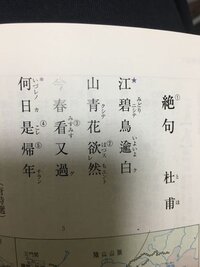 絶句 杜甫
江碧鳥逾白
山青花欲然
今春看又過
何日是帰年